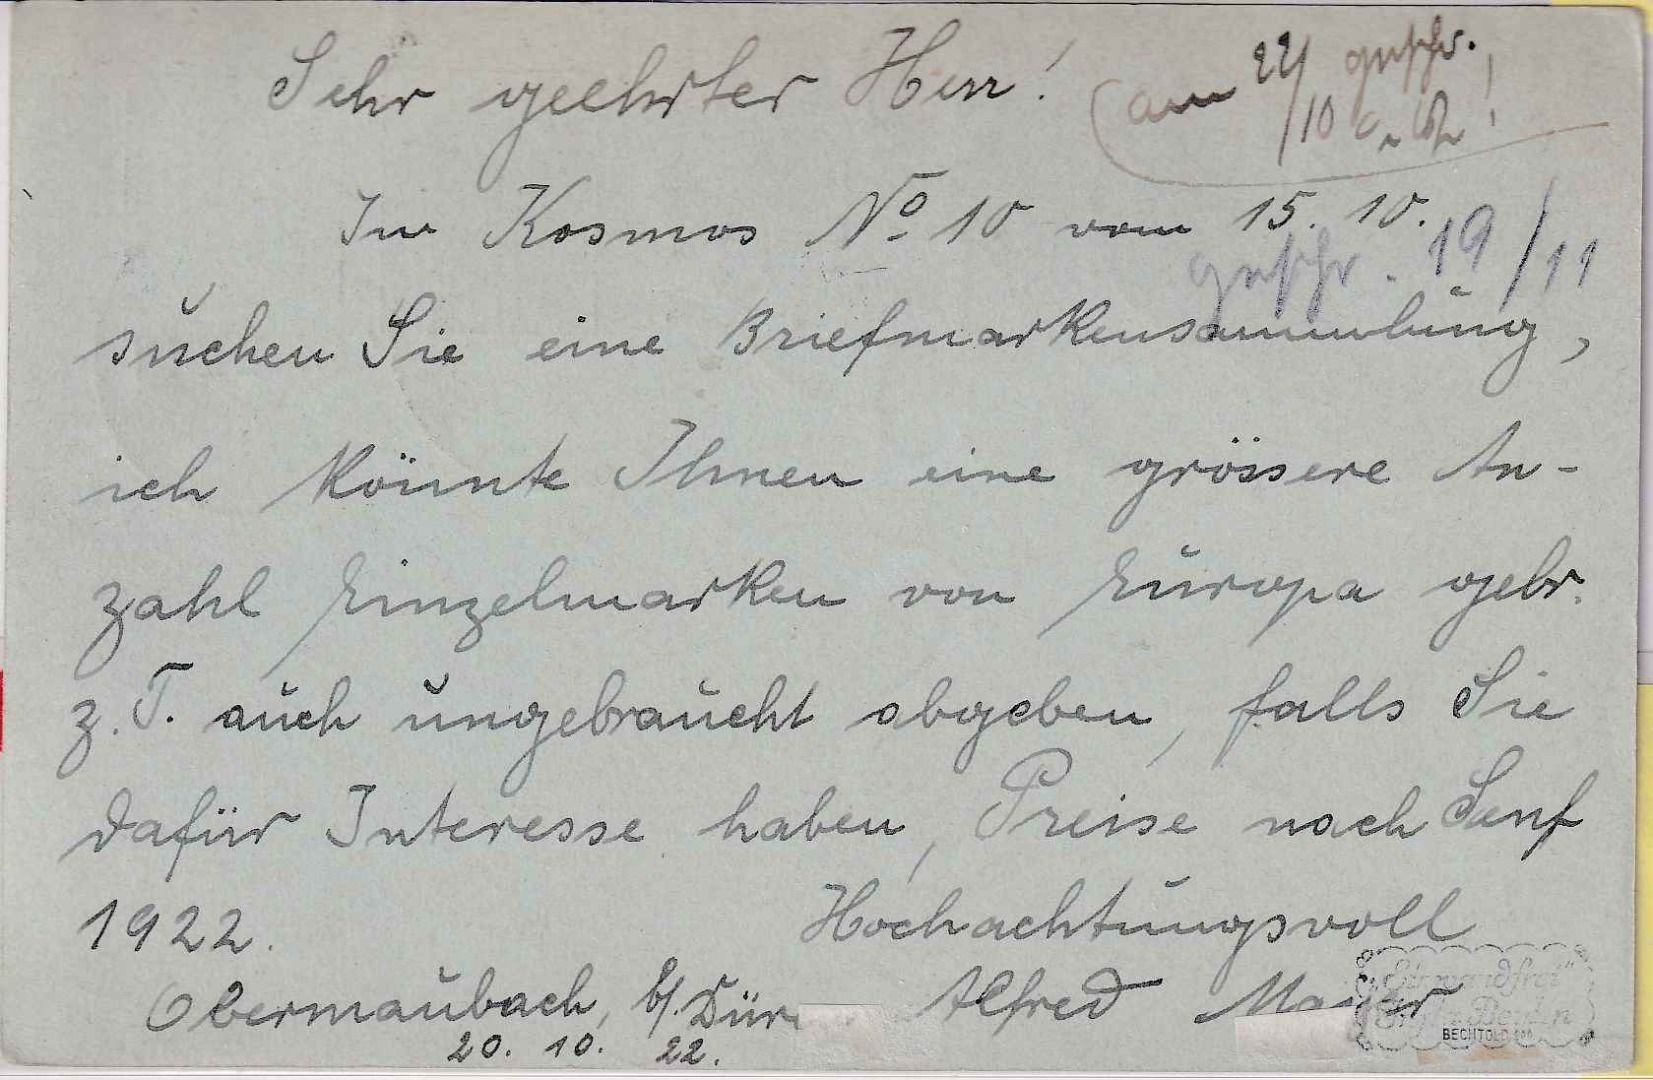 Sehr geehrter Herr!
(am 22/10 geschr.
Im Kosmos No 10 vom 15. 10.
geschr. 19/11
suchen Sie eine Briefmarkensammlung,
ich könnte Ihnen eine grössere An-
zahl Einzelmarken von Europa gebr.
z. T. auch ungebraucht abgeben, falls Sie
dafür Interesse haben, Preise nach Senf
1922.
Hochachtungsvoll
Obermaubach, b/ Dür Alfred
20. 10. 22.
BECHTOLD